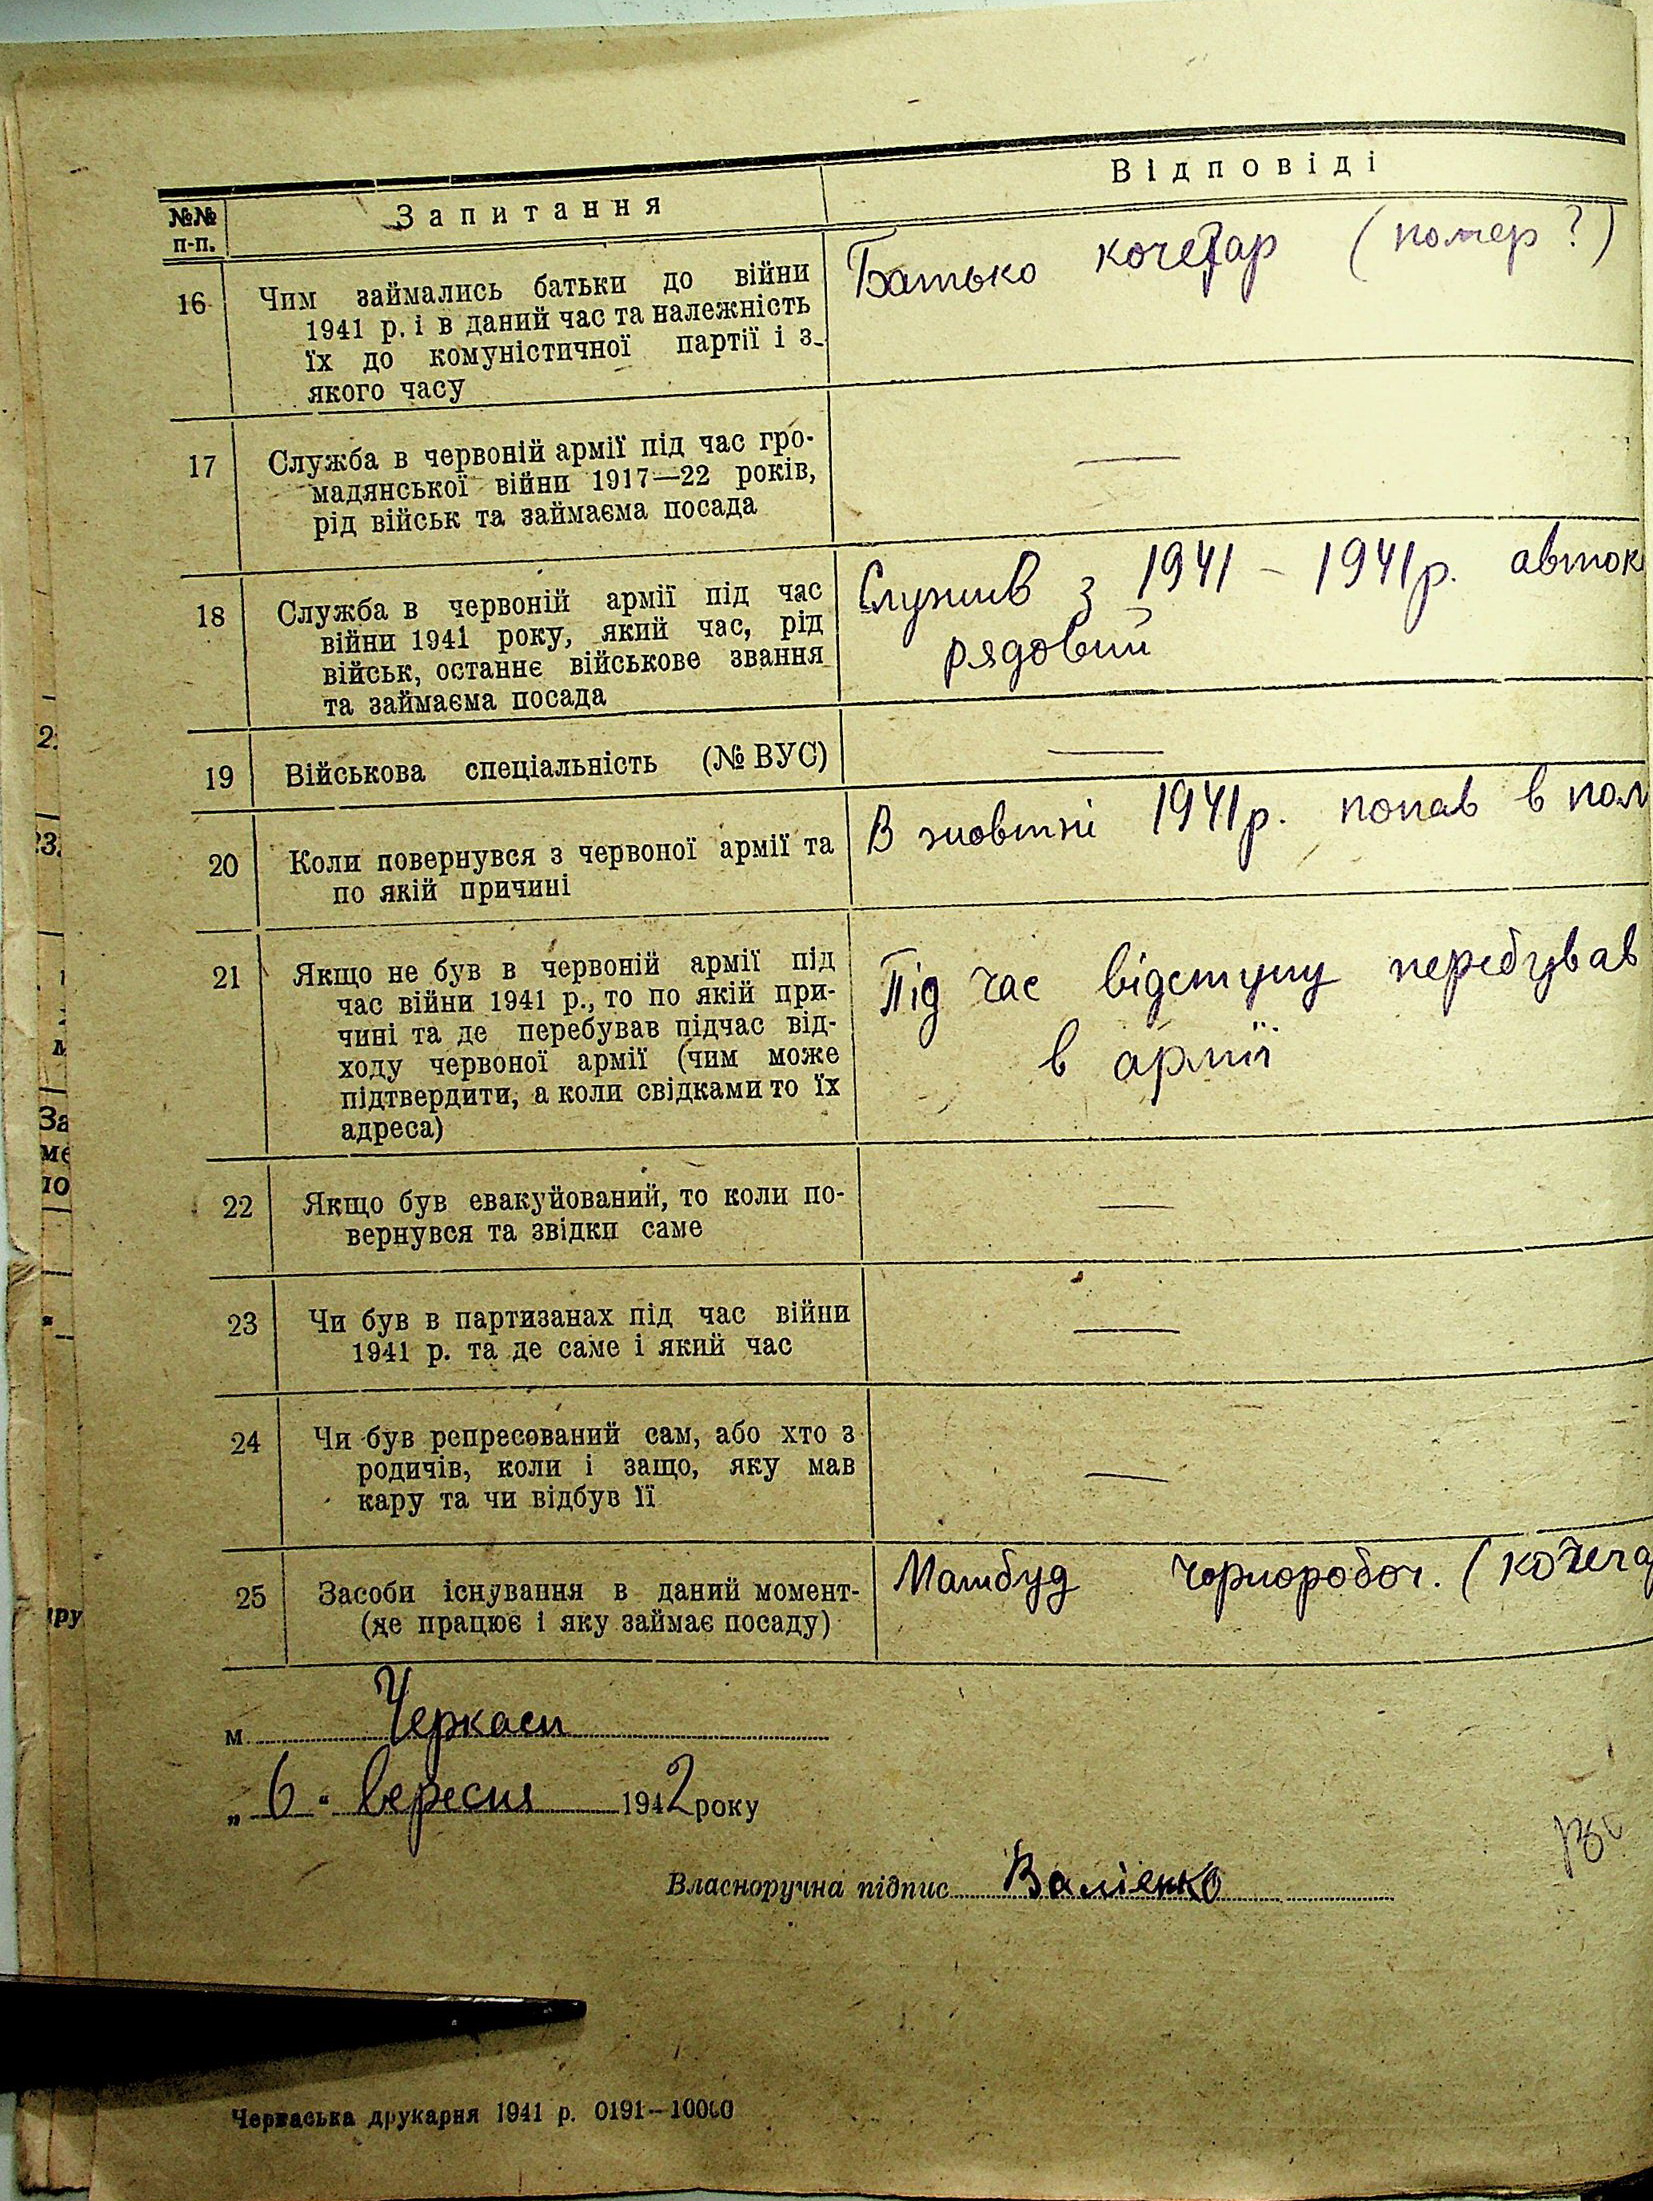 №№ п-п.
Запитання
Відповіді
16
Чим займались батьки до війни
1941 р. і в даний час та належність
їх до комуністичної партії і з
якого часу
Батько кочегар (помер?)
17
Служба в червоній армії під час гро-
мадянської війни 1917—22 років,
рід військ та займаєма посада
—
18
Служба в червоній армії під час
війни 1941 року, який час, рід
військ, останнє військове звання
та займаєма посада
Служив з 1941 – 1941 р. авток
рядовий
19
Військова спеціальність (№ ВУС)
—
20
Коли повернувся з червоної армії та
по якій причині
В жовтні 1941 р. попав в пол
21
Якщо не був в червоній армії під
час війни 1941 р., то по якій при-
чині та де перебував підчас від-
ходу червоної армії (чим може
підтвердити, а коли свідками то їх
адреса)
Під час відступу перебував
в армії
22
Якщо був евакуйований, то коли по-
вернувся та звідки саме
—
23
Чи був в партизанах під час війни
1941 р. та де саме і який час
—
24
Чи був репресований сам, або хто з
родичів, коли і защо, яку мав
кару та чи відбув її
—
25
Засоби існування в даний момент-
(де працює і яку займає посаду)
Машбуд чорнороboч. (кочега
м. Черкаси
„6“ вересня 1942 року
Власноручна підпис
Черкаська друкарня 1941 р. 0191—10000